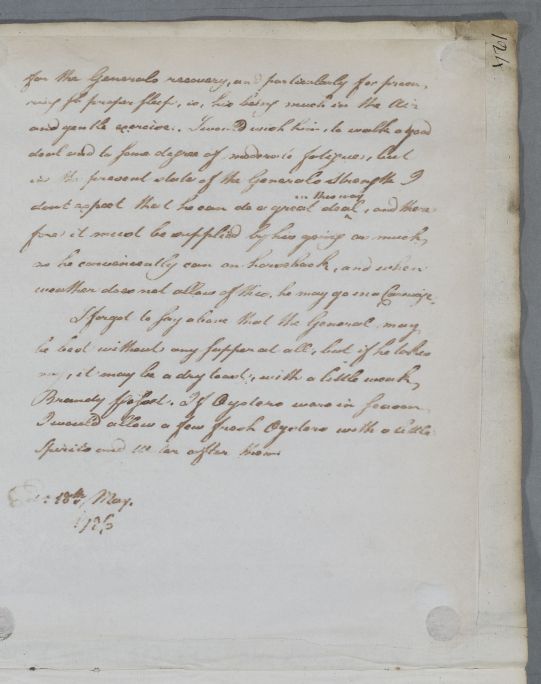 124
for the Generals recovery, and particularly for procu,
ring proper sleep, is, his being much in the Air
and gentle exercise. I would wish him, to walk a good
deal and to some degree of moderate fatigue, but
in the present state of the Generals Strength I
in this way
dont expect that he can do a great deal, and there
fore it must be supplied by his going as much,
as he conveniently can on horseback, and when
weather does not allow of this, he may go in a Carriage.
I forgot to say above that the General may
be best without any supper at all, but if he takes
any, it may be a dry toast, with a little weak,
Brandy If Oysters were in season
I would allow a few fresh Oysters with a little
Spirits and Water after them
18th May.